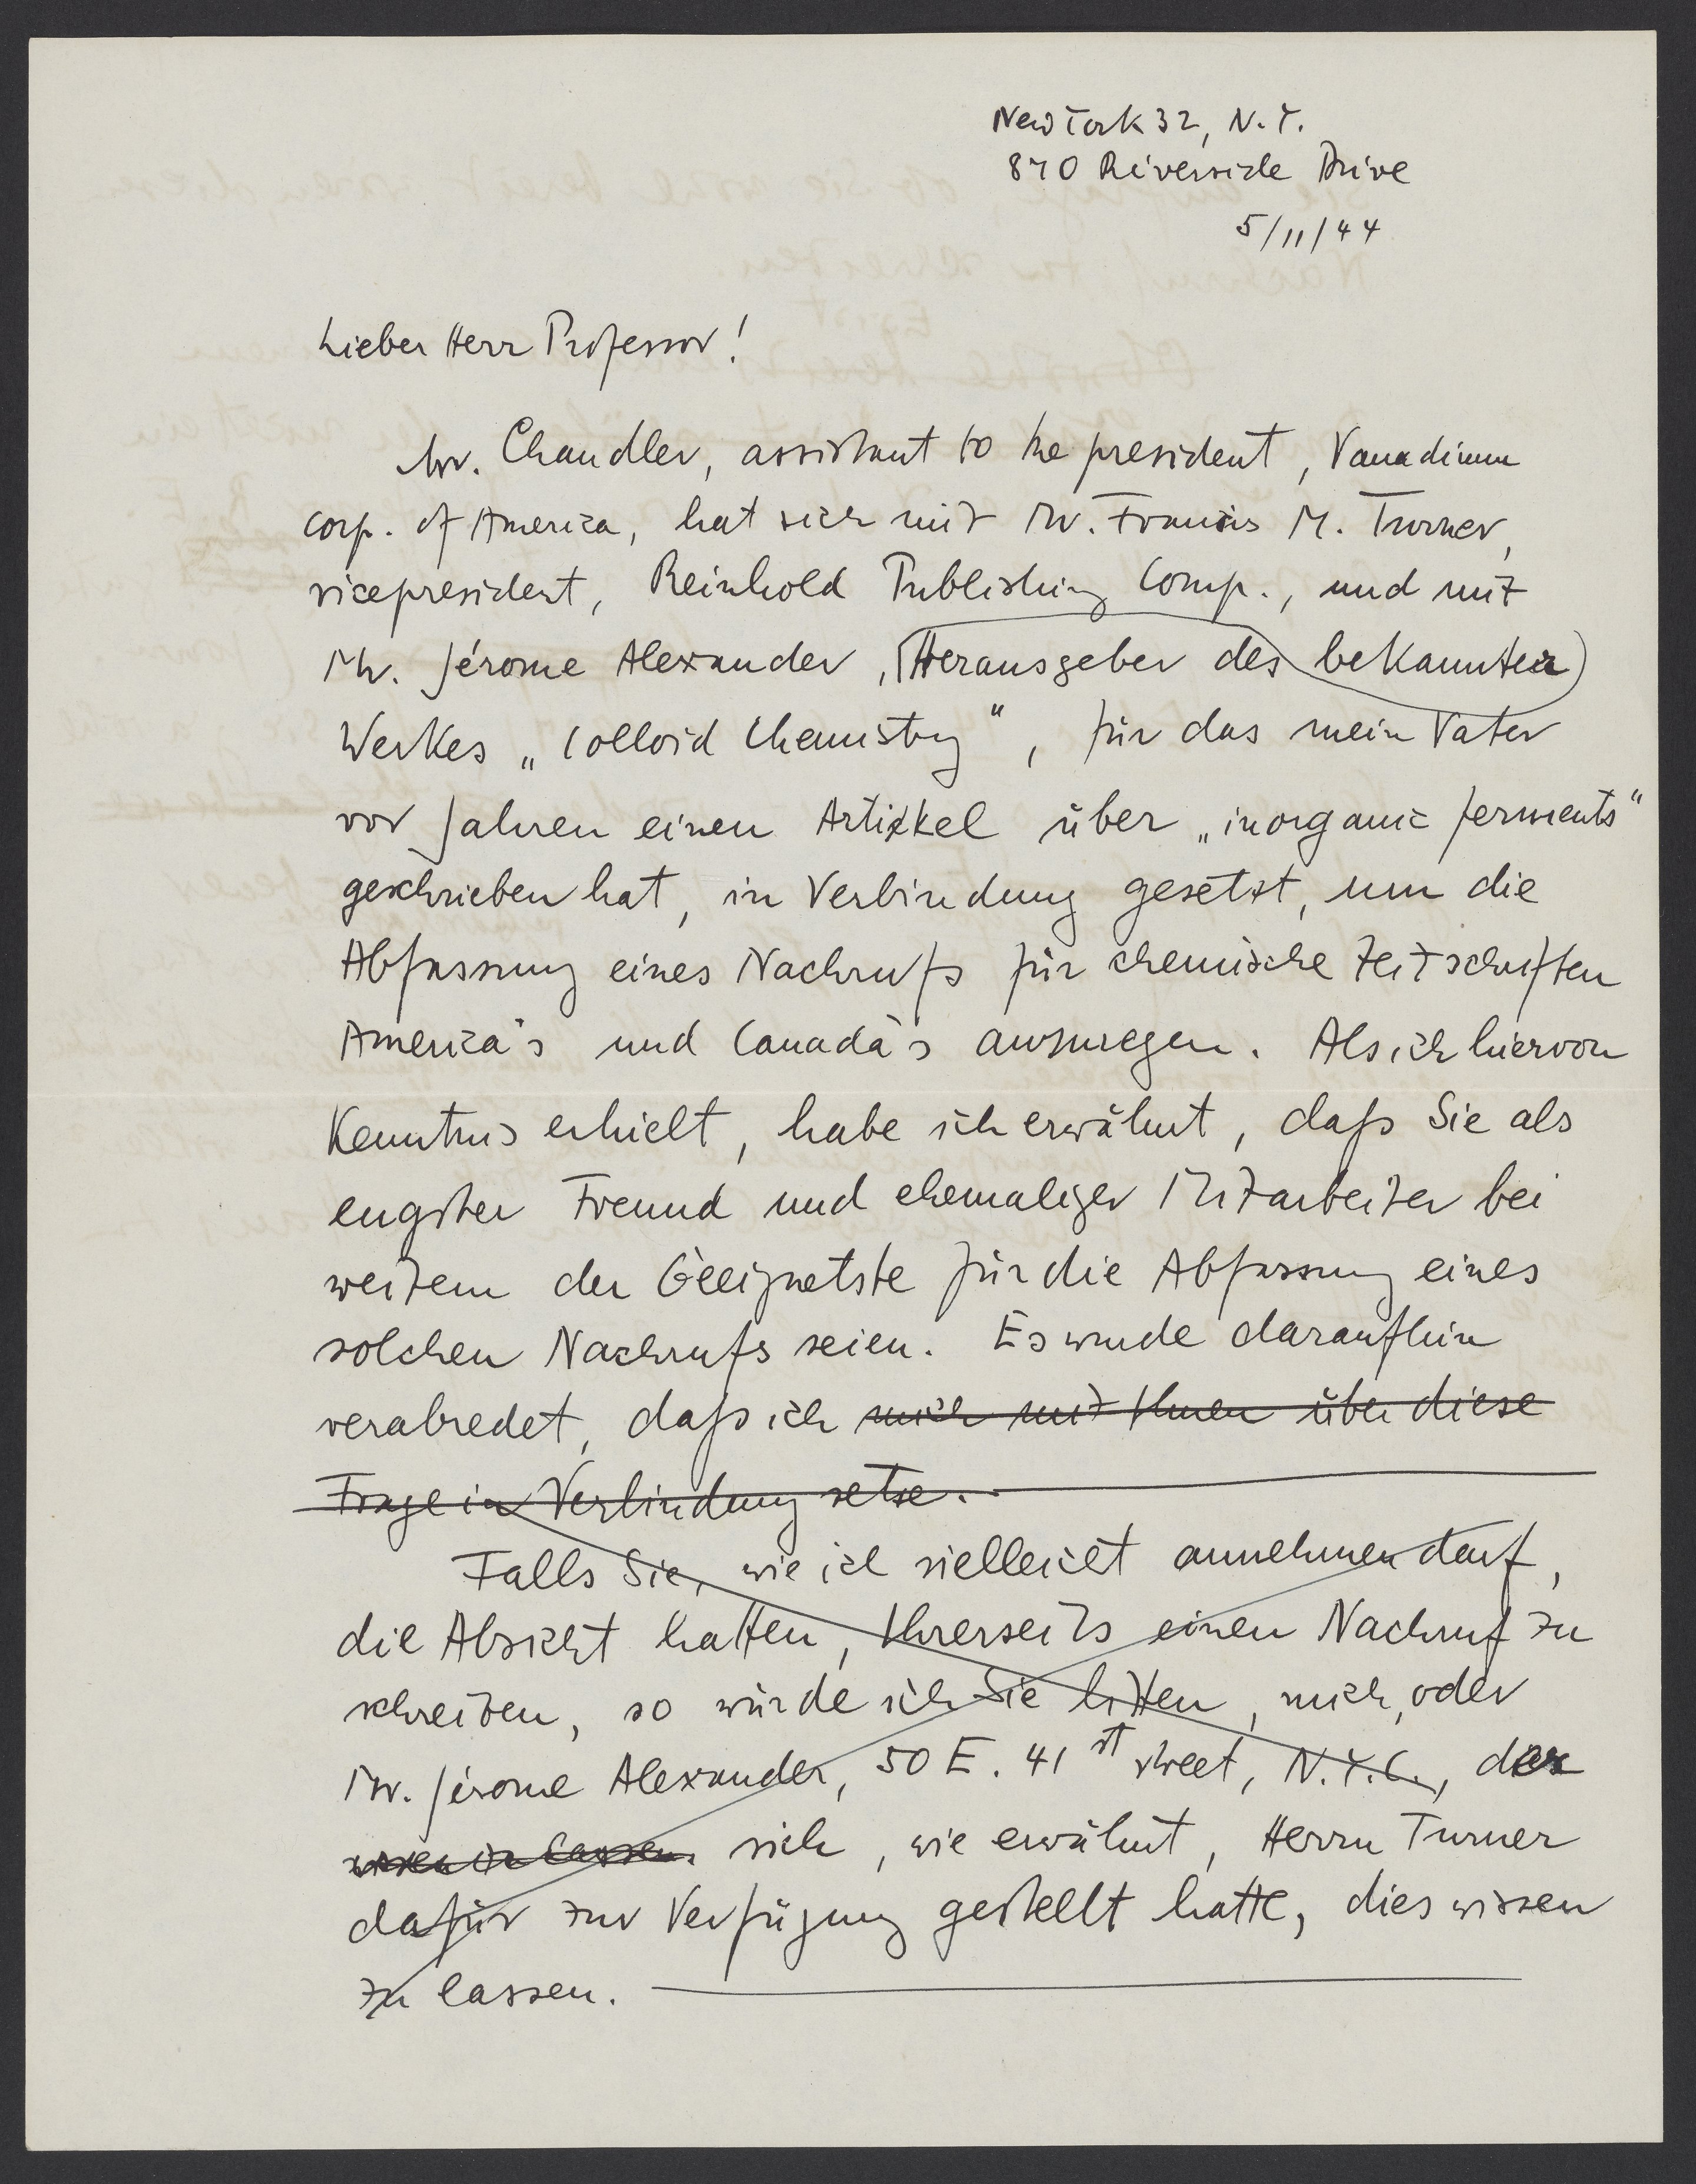 New York 32, N.Y.
870 Riverside Drive
5/11/44
Lieber Herr Professor!
Mr. Chandler, assistant to the president, Vanadium
Corp. of America, hat sich mit Mr. Francis M. Turner,
vicepresident, Reinhold Publishing Comp., und mit
Mr. Jérome Alexander, (Herausgeber des bekannten)
Werkes „Colloid Chemistry“, für das mein Vater
vor Jahren einen Artikel über „inorganic ferments“
geschrieben hat, in Verbindung gesetzt, um die
Abfassung eines Nachrufs für chemische Zeitschriften
America's und Canada's anzuregen. Als ich hiervon
Kenntnis erhielt, habe ich erwähnt, daß Sie als
engster Freund und ehemaliger Mitarbeiter bei
weitem der Geeignetste für die Abfassung eines
solchen Nachrufs seien. Es wurde daraufhin
verabredet, daß ich mich mit Ihnen über diese
Frage in Verbindung setze.
Falls Sie, wie ich vielleicht annehmen darf,
die Absicht hatten, Ihrerseits einen Nachruf zu
schreiben, so würde ich Sie bitten, mich, oder
Mr. Jérome Alexander, 50 E. 41st street, N.Y.C., der
wissen zu lassen. sich, wie erwähnt, Herrn Turner
dafür zur Verfügung gestellt hatte, dies wissen
zu lassen.